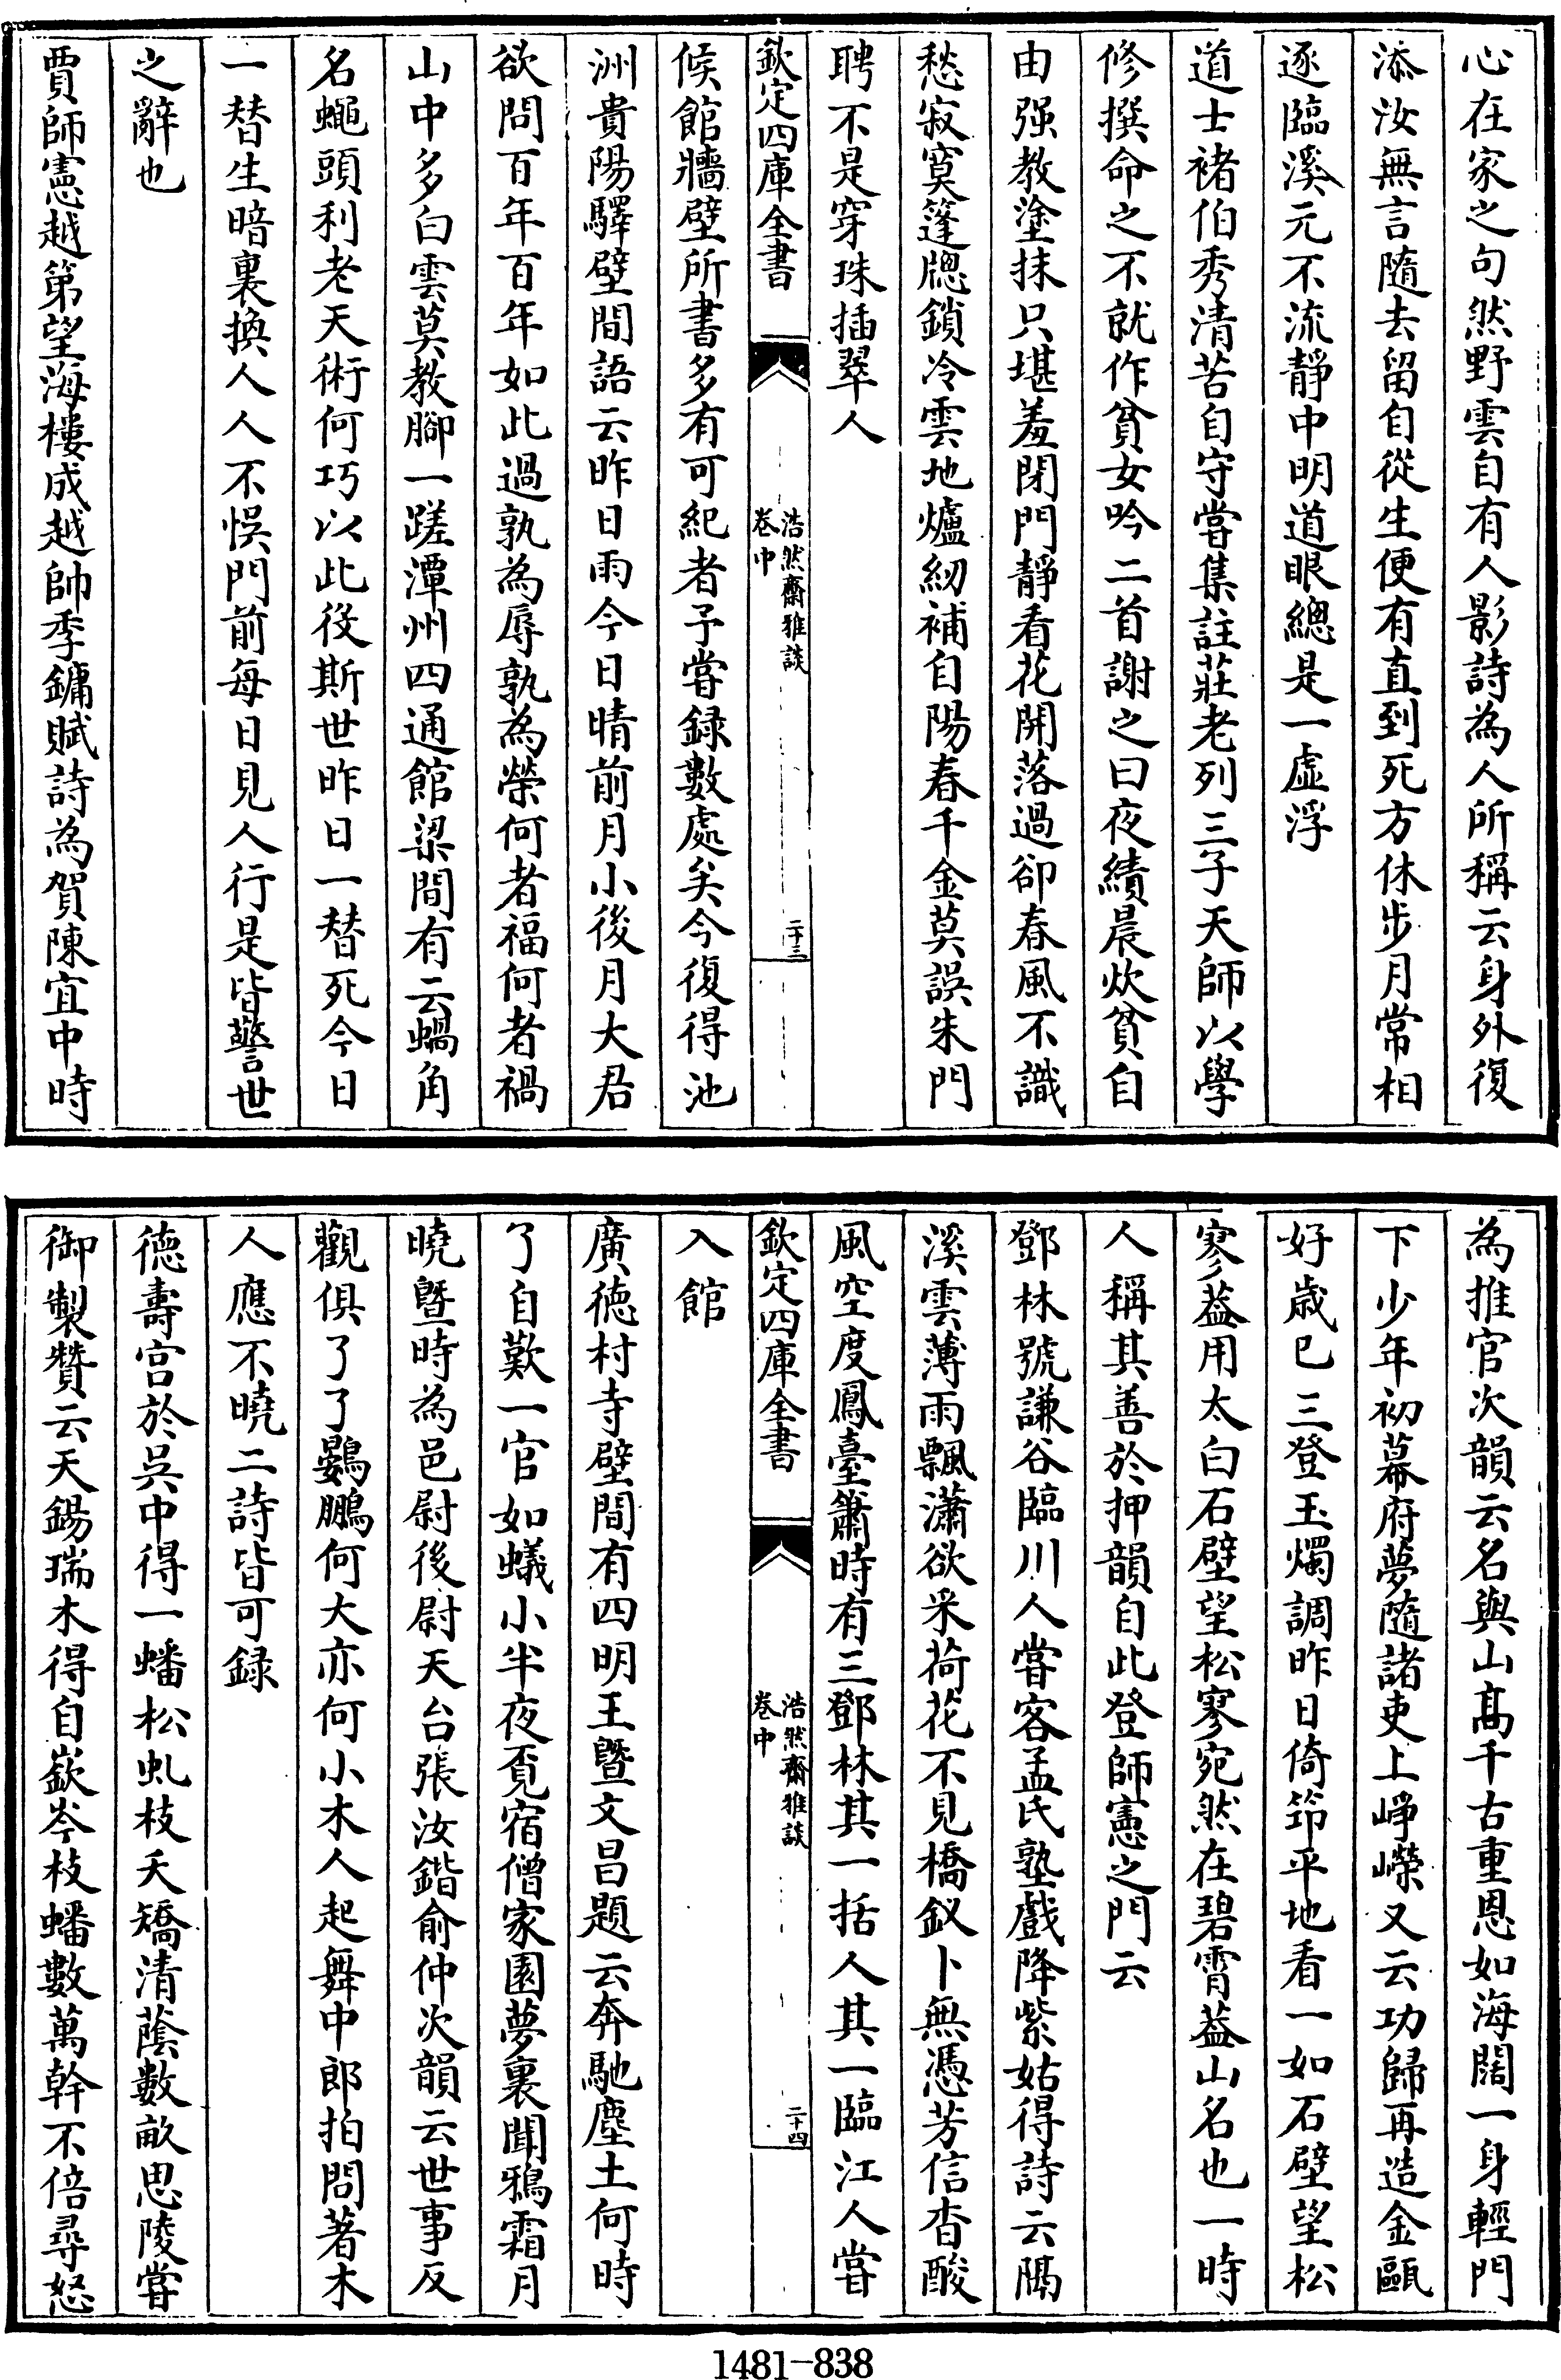 心在家之句然野雲自有人影詩為人所稱云身外復
添汝無言隨去留自從生便有直到死方休步月常相
逐臨溪元不流靜中明道眼總是一虛浮
道士褚伯秀清苦自守嘗集註莊老列三子天師以學
修撰命之不就作貧女吟二首謝之曰夜績晨炊貧自
由强教塗抹只堪羞閉門靜看花開落過卻春風不識
愁寂寞篷牕鎖冷雲地爐紉補自陽春千金莫誤朱門
聘不是穿珠插翠人
欽定四庫全書
浩然齋雅談
卷中
二十三
候館牆壁所書多有可紀者予嘗録數處矣今復得池
洲貴陽驛壁間語云昨日雨今日晴前月小後月大君
欲問百年百年如此過孰為辱孰為榮何者福何者禍
山中多白雲莫教腳一蹉潭州四通館梁間有云蝸角
名蠅頭利老天術何巧以此役斯世昨日一替死今日
一替生暗裏換人人不悞門前每日見人行是皆警世
之辭也
賈師憲越第望海樓成越帥季鏞賦詩為賀陳宜中時
為推官次韻云名與山髙千古重恩如海闊一身輕門
下少年初幕府夢隨諸吏上崢嶸又云功歸再造金甌
好歲已三登玉燭調昨日倚筇平地看一如石壁望松
寥葢用太白石壁望松寥宛然在碧霄葢山名也一時
人稱其善於押韻自此登師憲之門云
鄧林號謙谷臨川人嘗客孟氏塾戲降紫姑得詩云隔
溪雲薄雨飄瀟欲采荷花不見橋釵卜無憑芳信杳酸
風空度鳳臺簫時有三鄧林其一括人其一臨江人嘗
欽定四庫全書
浩然齋雅談
卷中
二十四
入館
廣徳村寺壁間有四明王曁文昌題云奔馳塵土何時
了自歎一官如蟻小半夜覔宿僧家園夢裏聞鴉霜月
曉曁時為邑尉後尉天台張汝鍇俞仲次韻云世事反
觀俱了了鷃鵬何大亦何小木人起舞中郎拍問著木
人應不曉二詩皆可録
徳壽宫於吳中得一蟠松虬枝夭矯清蔭數畝思陵嘗
御製贊云天錫瑞木得自嶔岑枝蟠數萬幹不倍尋怒
1481-838